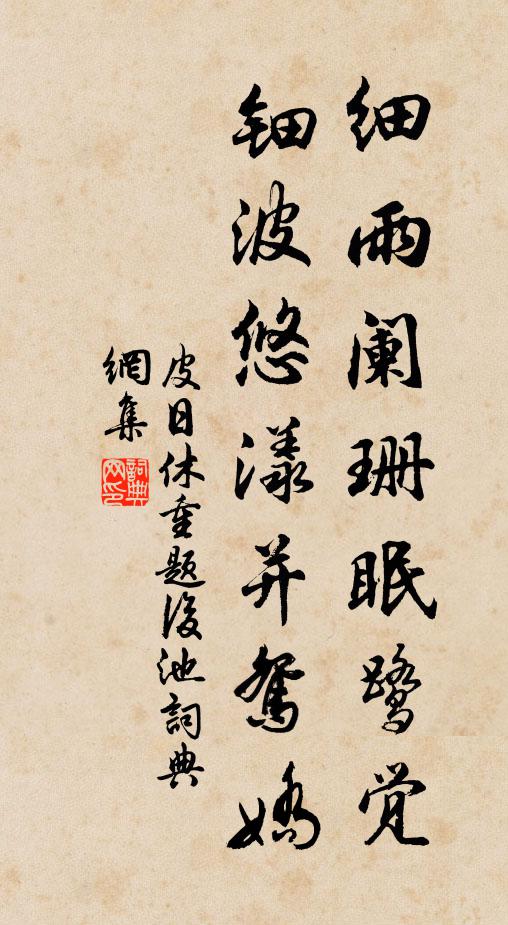 细雨阑珊眠鹭觉
钿波悠漾并鸳娇
皮日休重题后池词典
网集
词典
网印